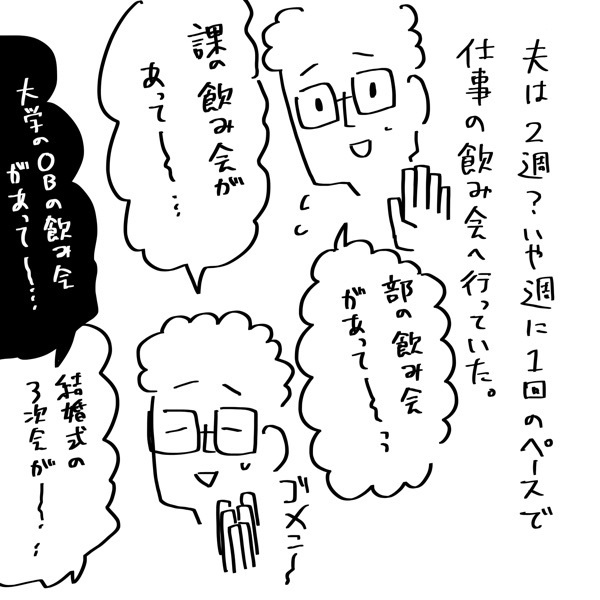 夫は2週?いや週に1回のペースで
仕事の飲み会へ行っていた。
課の飲み会が
あって〜…
部の飲み会
があって〜…
大学のOBの飲み会
があって〜…
結婚式の
3次会が〜…
ゴメンー